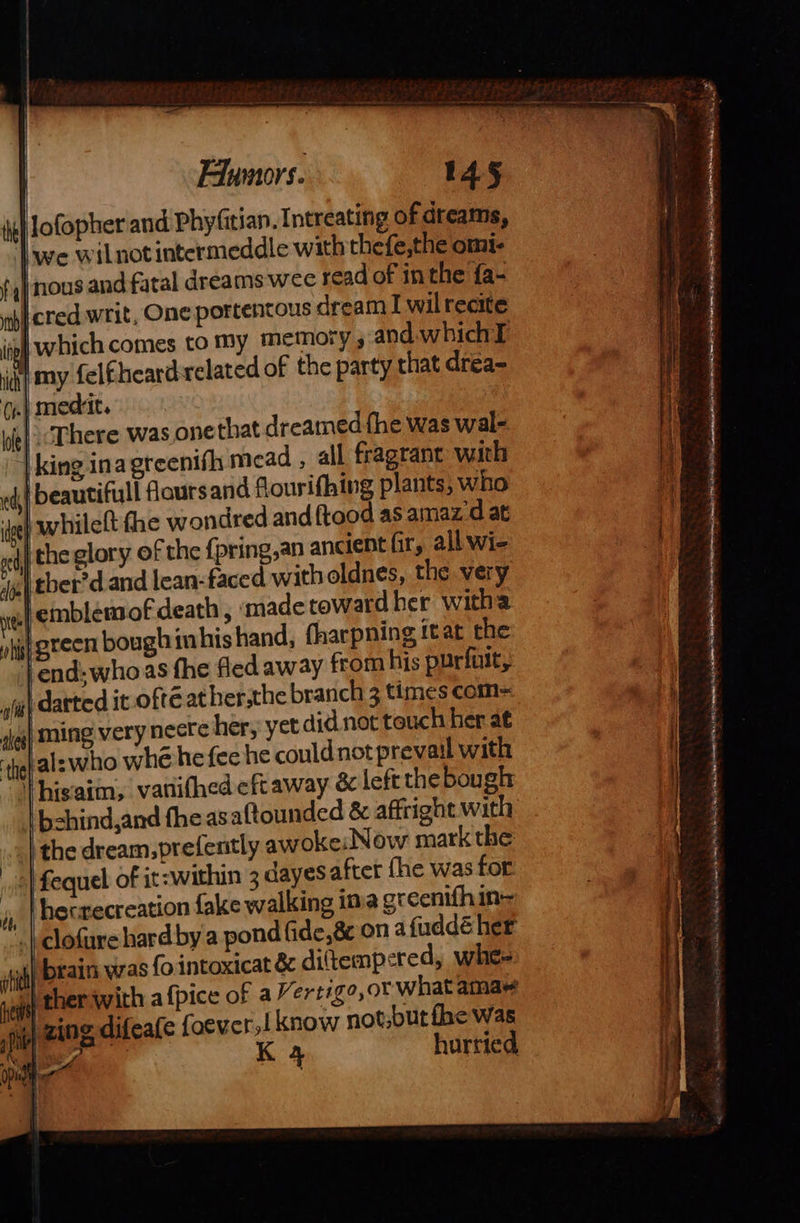 Humors. 145
loſopher and Phyſitian. Intreating of dreams,
we wil not intermeddle with theſe, the omi-
nous and fatal dreams wee read of in the ſa-
cred writ, One portentous dream I wil recite
which comes to my memory, and which I
my ſelf heard related of the party that drea-
med it.
There was one that dreamed ſhe was wal-
king in a greeniſh mead, all fragrant with
beautifull flours and flouriſhing plants, who
whileſt ſhe wondred and ſtood as amaz'd at
the glory of the ſpring, an ancient ſir, all wi-
ther'd and lean-faced with oldnes, the very
emblem of death, made toward her with a
green bough in his hand, ſharpning it at the
end; who as ſhe fled away from his purſuit,
darted it oftē at her, the branch 3 times com-
ming very neere her, yet did not touch her at
al: who whē he ſee he could not prevail with
his aim, vaniſhed eft away & left the bough
behind, and ſhe as aſtounded & affright with
the dream, preſently awoke: Now mark the
ſequel of it: within 3 dayes after ſhe was for
her recreation ſake walking in a greeniſh in-
cloſure hard by a pond ſide, & on a ſuddē her
brain was ſo intoxicat & diſtempered, whe-
ther with a ſpice of a Vertigo, or what ama-
zing diſeaſe ſoever, I know not, but ſhe was
K 4 hurried